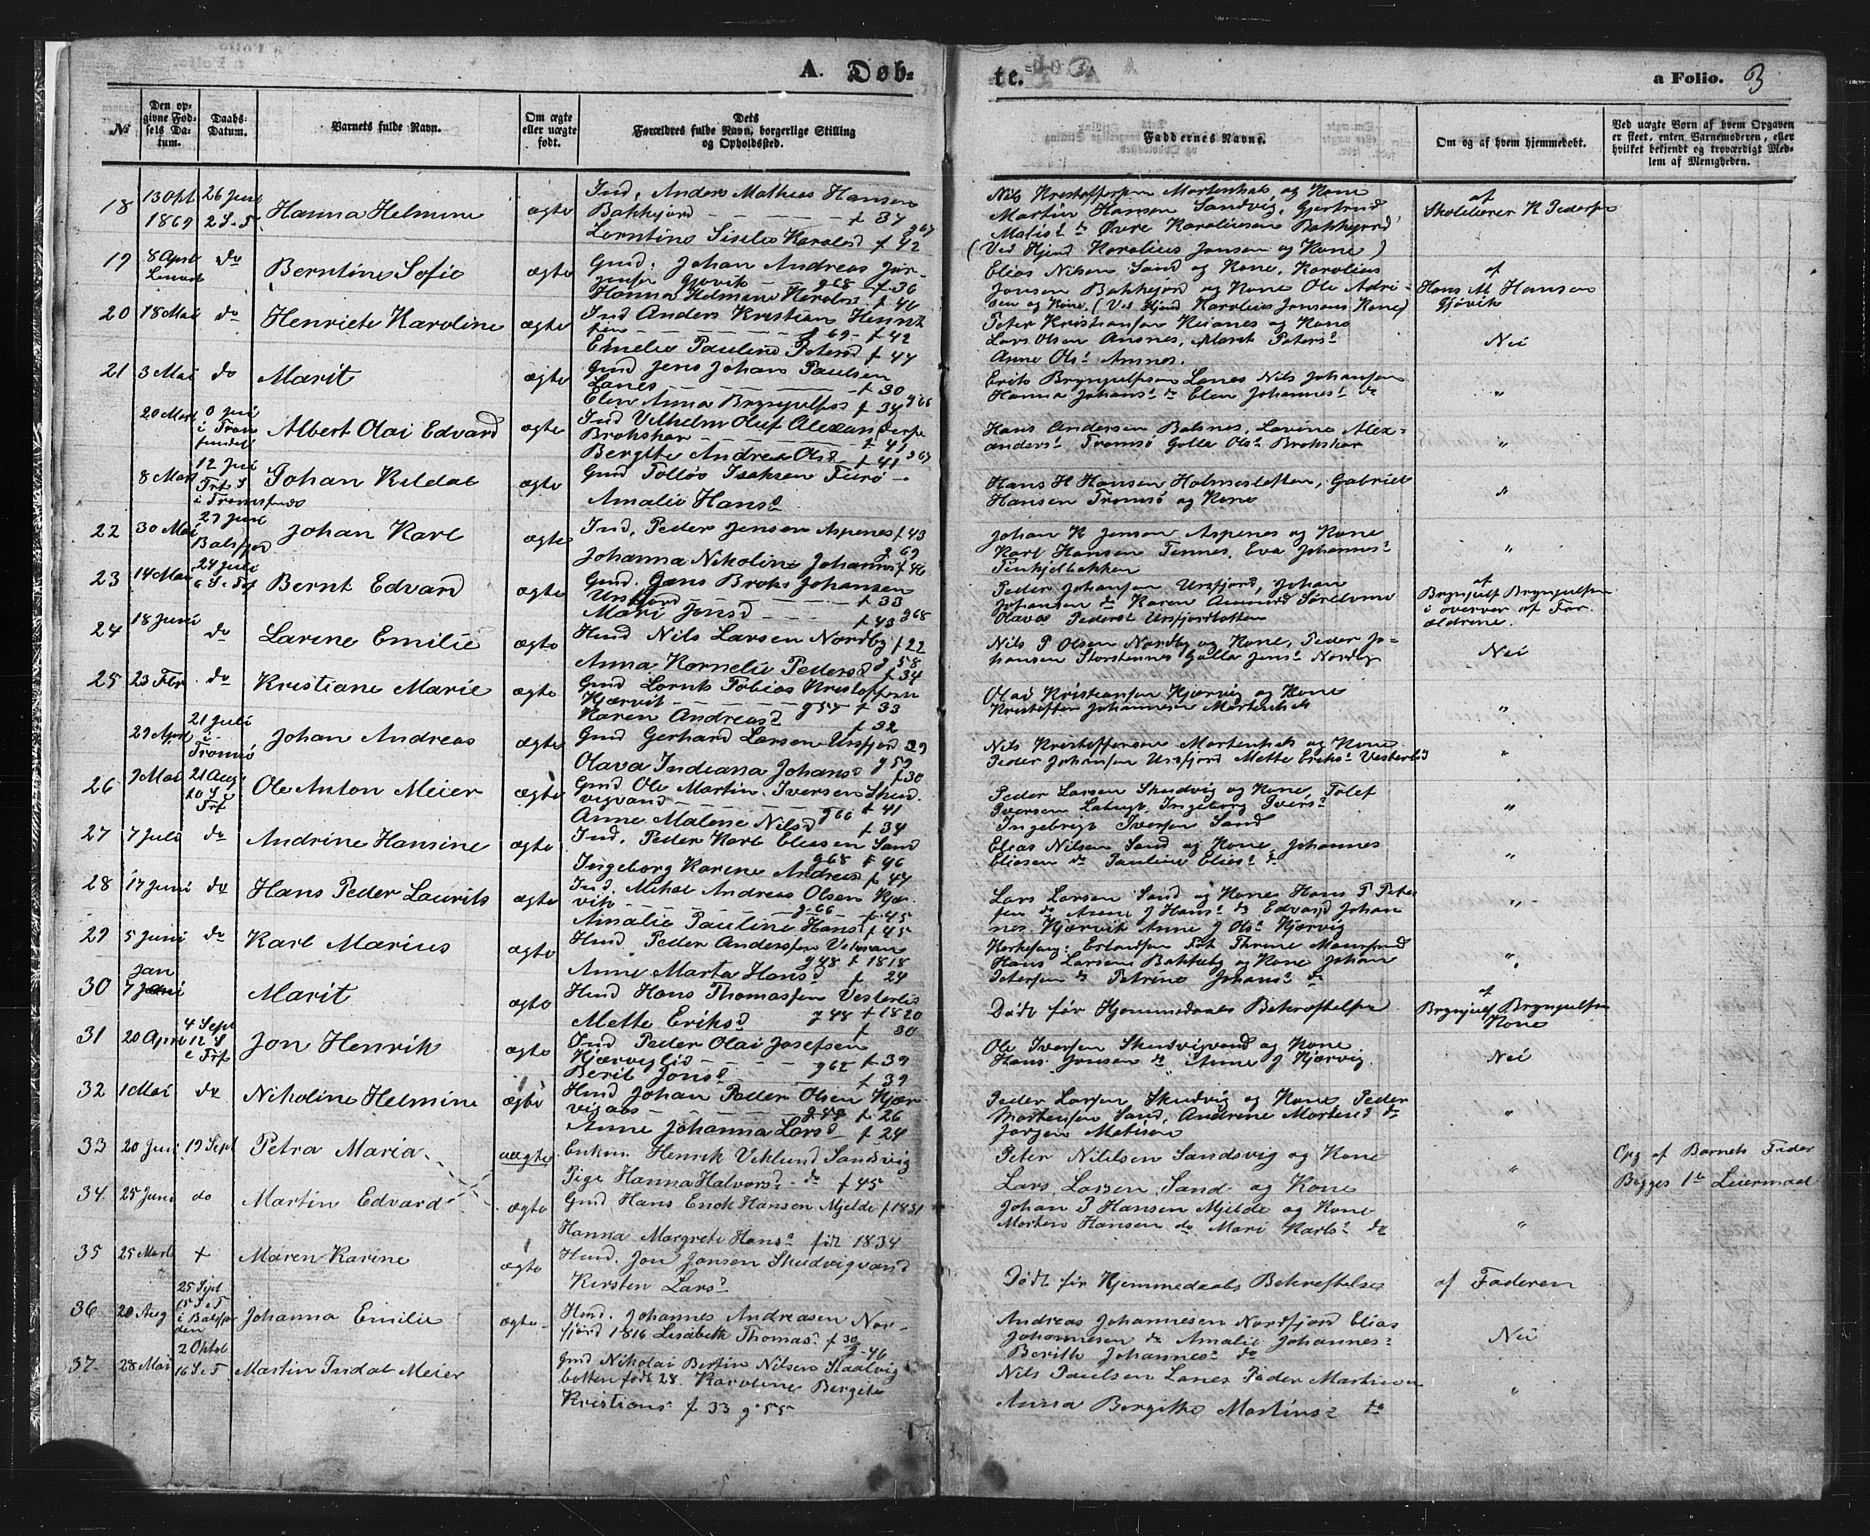 A. Døb-
te.
a Folio. 3
No
Den op-
givne Fød-
sels Da-
tum.
Daabs-
Datum.
Barnets fulde Navn.
Om ægte
eller uægte
født.
Dets
Forældres fulde Navn, borgerlige Stilling
og Opholdssted.
Faddernes Navne.
Om og af hvem hjemmedøbt.
Ved uægte Børn af hvem Opgaven
er skeet, enten Barnemoderen, eller
hvilket bekjendt og troværdigt Med-
lem af Menigheden.
18 1869 26 Juni Hanna Helmine ægte
Ind. Anders Mathias Hansen
Bakkejord f 37
f 42
Nils Kristoffersen Mortenhals og Kone
Martin Hansen Sandvig, Gjertrud
Øvre Karoliusen Bakkejord
(Ved Hjemd Karolius Jonsen og Kone)
af
Skolelærer K Pedersen
19 8 April do Berntine Sofie ægte
Gmd. Johan Andreas Jør-
gensen Gjøvik g 68 f 36
Hanna Helmine f 46
Elias Nilsen Sand og Kone, Karolius
Jonsen Bakkejord og Kone Ole Adri-
sen og Kone. (Ved Hjemd Karolius Jonsens Kone)
af
Hans M Hansen
Gjøvik
20 18 Mai do Henriete Karoline ægte
Ind Anders Kristian Henrik
sen g 69 f 42
Emelie Pauline Petersd f 44
Peter Kristiansen og Kone
Lars Olsen Ansnes, Maret Peters d
Anne Ols d Ansnes.
Nei
21 3 Mai do Marit ægte
Gmd Jens Johan Paulsen
Lanes f 30
Elen Anna Bryngulfsd f 34 g 66
Erik Bryngulfsen Lanes Nils Johansen
Hanna Johans d do Elen Johannes d do
"
20 Mart i Albert Olai Edvard ægte
Ind Vilhelm Oluf Alexandersen
Brokskar f 41
Bergite Andrea Olsd f 41 g 67
Hans Andersen Balsnes, Lovine Alex-
anders d Tromsø Golla Ols d Brokskar
"
8 Mart 12 Juli i Tromsøsund Johan Kildal ægte
Gmd Tolløv Isaksen
Amalie Hans d
Hans H Hansen Holmesletten, Gabriel
Hansen Tromsø og Kone
"
22 30 Mai 27 Juni Balsfjord Johan Karl ægte
Ind. Peder Jensen Aspenes f 43
g 69
Johanna Nikoline Johannsd f 46
Johan K Jensen Aspenes og Kone
Karl Hansen Tennes, Eva Johannes d
"
23 14 Mai 24 Juli 6 S e Trf Bernt Edvard ægte
Gmd. Jens Broks Johansen
Ursfjord f 33
Mari Jonsd f 43 g 68
Peder Johansen Ursfjord, Johan
Johansen do Karen
Olava Peders d Ursfjordbotten
af
Bryngulf Bryngulfsen
i overvær af For-
ældrene.
24 18 Juni do Larine Emilie ægte
Hmd Nils Larsen Nordby f 22
g 58
Anna Kornelie Pedersd f 34
Nils P Olsen Nordby og Kone, Peder Jo-
hansen Storstennes Golla Jens d Nordby
Nei
25 23 Febr do Kristiane Marie ægte
Gmd Lornts Tobias Kristoffersen
Kjærvik g 57 f 33
Karen Andreasd f 32
Olai Kristiansen Kjærvig og Kone
Kristoffer Johannesen Mortenhals
"
29 April 21 Juli i Tromsø Johan Andreas ægte
Gmd Gerhard Larsen Ursfjord 29
Olava Indiana Johansd g 59 f 30
Nils Kristoffersen Mortenhals og Kone
Peder Johansen Ursfjord Mette Eriks d Vesterlid
"
26 9 Mai 21 Aug 10 S e Trf Ole Anton Meier ægte
Gmd Ole Martin Iversen Skud-
vigvand f 41
Anne Malene Nilsd g 66 f 34
Peder Larsen Skudvig og Kone, Tolef
Iversen Ingeborg Ivers d
Ingebrigt Iversen Sand
"
27 7 Juli do Andrine Hansine ægte
Ind. Peder Karl Eliesen Sand
g 68 f 46
Ingeborg Karine Andreasd f 44
Elias Nilsen Sand og Kone, Johannes
Eliesen do Pauline Elies d do
"
28 17 Juni do Hans Peder Laurits ægte
Ind. Mikal Andreas Olsen Kjær-
vik g 66 f 45
Amalie Pauline Hansd f 45
Lars Larsen Sand og Kone Hans P Peter-
sen do Anne J Hans d do Edvard Johan
nes Kjærvik Anne J Ols d Kjærvig
"
29 5 Juni do Karl Marius ægte
Hmd. Peder Anderssen
g 48 f 1818
Anne Marta Hansd f 24
Hans Larsen Bakkeby og Kone Johan
Petersen do Petrine Johans d do
"
30 7 Jan Marit ægte
Hmd Hans Thomassen Vesterlid
g 48 f 1820
Mette Eriksd f 30
Døde før Hjemmedaabs Bekræftelse
af
Bryngulf Bryngulfsen
Kone
31 20 April 4 Sept 12 S e Trf Jon Henrik ægte
Ind Peder Olai Josefsen
Kjærviglid g 62 f 39
Berit Jons d f 39
Ole Iversen Skudvigvand og Kone
Hans Jonsen do Anne J Kjærvig
Nei
32 1 Mai do Nikoline Helmine ægte
Hmd Johan Peder Olsen Kjær-
vigaas f 26
Anne Johanna Larsd f 24
Peder Larsen Skudvig og Kone Peder
Mortensen Sand, Andrine Mortens d do
Jørgen Matisen
"
33 20 Juni 19 Sept Petra Maria uægte
Enkem. Henrik Veklund Sandsvig
Pige Hanna Halvorsd do f 45
Peter Nilsen Sandsvig og Kone
Lars Larsen Sand og Kone
"
Opg af Barnets Fader
Begges 1te Leiermaal
34 25 Juni do Martin Edvard ægte
Gmd Hans Enok Hansen Mjelde f 1831
Hanna Margrete Hans d født 1834
Johan P Hansen Mjelde og Kone
Morten Hansen do Mari Karls d do
"
35 25 Mart + Maren Karine ægte
Hmd. Jon Jonsen Skudvigvand
Kirsten Lars d
Døde før Hjemmedaabs Bekræftelse
af Faderen
36 20 Aug 25 Sept 15 S e T i Balsfjorden Johanna Emilie ægte
Hmd. Johannes Andreasen Nor-
fjord 1816 Lisabeth Thomas d f 30
g 46
Andreas Johannesen Nordfjord Elias
Johannesen do Amalie Johannes d
Berith Johannes d do
Nei
37 28 Mai 2 Oktob 16 S e T Martin Indal Meier
Gmd Nikolai Bertin Nilsen Staalvig
botten født 28 Karoline Bergite
Kristians d f 33 g 55
Nils Paulsen Lanes Peder Martinsen
Anna Bergitte Martins d do
"